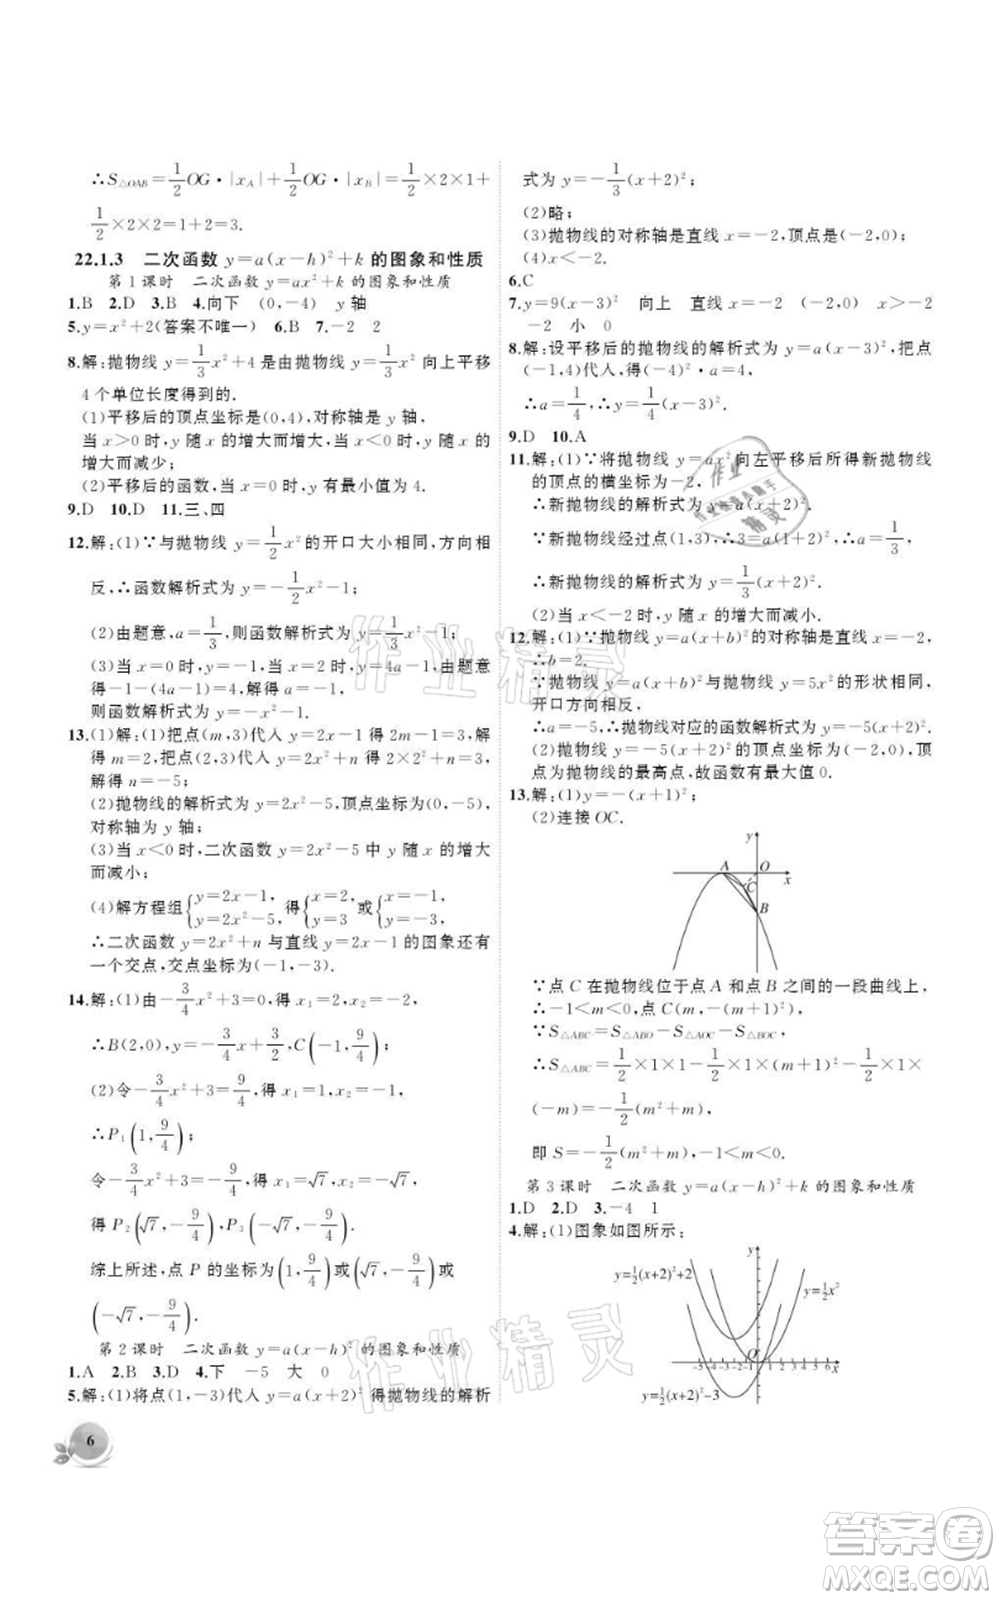 ∴S△OAB=1/2 OG·|xA|+1/2 OG·|xB|=1/2×2×1+
1/2×2×2=1+2=3.
22.1.3 二次函数 y=a(x-h)²+k 的图象和性质
第1课时 二次函数 y=ax²+k 的图象和性质
1.B 2.D 3.B 4.向下 (0,-4) y 轴
5.y=x²+2(答案不唯一) 6.B 7.-2 2
8.解:抛物线 y=1/3x²+4 是由抛物线 y=1/3x² 向上平移
4 个单位长度得到的.
(1)平移后的顶点坐标是(0,4),对称轴是 y 轴,
当 x>0 时,y 随 x 的增大而增大,当 x<0 时,y 随 x 的
增大而减少;
(2)平移后的函数,当 x=0 时,y 有最小值,最小值为 4.
9.D 10.D 11.三、四
12.解:(1)∵与抛物线 y=1/2x² 的开口大小相同,方向相
反,∴函数解析式为 y=-1/2x²-1;
(2)由题意,a=1/3,则函数解析式为 y=1/3x²-1;
(3)当 x=0 时,y=-1,当 x=2 时,y=4a-1,由题意
得-1-(4a-1)=4,解得 a=-1.
则函数解析式为 y=-x²-1.
13.(1)解:(1)把点(m,3)代入 y=2x-1得 2m-1=3,解
得 m=2,把点(2,3)代入 y=2x²+n 得 2×2²+n=3,
解得 n=-5;
(2)抛物线的解析式为 y=2x²-5,顶点坐标为(0,-5),
对称轴为 y 轴;
(3)当 x<0 时,二次函数 y=2x²-5 中 y 随 x 的增大
而减小;
(4)解方程组{y=2x-1, y=2x²-5,得{x=2, y=3 或{x=-1, y=-3,
∴二次函数 y=2x²+n 与直线 y=2x-1 的图象还有
一个交点,交点坐标为(-1,-3).
14.解:(1)由-3/4x²+3=0,得 x=2,x=-2,
∴B(2,0),y=-3/4x+3/2,C(-1,9/4);
(2)令-3/4x²+3=9/4,得 x₁=1,x₂=-1,
∴P₁(1,9/4);
令-3/4x²+3=-9/4,得 x₁=√7,x₂=-√7,
得 P₂(√7,-9/4),P₃(-√7,-9/4).
综上所述,点 P 的坐标为(1,9/4)或(√7,-9/4)或
(-√7,-9/4).
第2课时 二次函数 y=a(x-h)² 的图象和性质
1.A 2.B 3.D 4.下 -5 大 0
5.解:(1)将点(1,-3)代入 y=a(x+2)² 得抛物线的解析
6
式为 y=-1/3(x+2)²;
(2)略;
(3)抛物线的对称轴是直线 x=-2,顶点是(-2,0);
(4)x<-2.
6.C
7.y=9(x-3)² 向上 直线 x=-2 (-2,0) x>-2
-2 小 0
8.解:设平移后的抛物线的解析式为 y=a(x-3)²,把点
(-1,4)代入,得(-4)²·a=4,
∴a=1/4,∴y=1/4(x-3)².
9.D 10.A
11.解:(1)∵将抛物线 y=ax²向左平移后所得新抛物线
的顶点的横坐标为-2,
∴新抛物线的解析式为 y=a(x+2)².
∵新抛物线经过点(1,3),∴3=9a,∴a=1/3,
∴新抛物线的解析式为 y=1/3(x+2)².
(2)当 x<-2 时,y 随 x 的增大而减小.
12.解:(1)∵抛物线 y=a(x+b)² 的对称轴是直线 x=-2,
∴b=2.
∵抛物线 y=a(x+b)² 与抛物线 y=5x² 的形状相同,
开口方向相反,
∴a=-5,∴抛物线对应的函数解析式为 y=-5(x+2)².
(2)抛物线 y=-5(x+2)² 的顶点坐标为(-2,0),顶
点为抛物线的最高点,故函数有最大值 0.
13.解:(1)y=-(x+1)²;
(2)连接OC.
y
A O
x
C
B
∵点 C 在抛物线位于点 A 和点 B 之间的一段曲线上,
∴-1<m<0,点 C(m,-(m+1)²),
∵S△ABC=S△ABO-S△AOC-S△BOC,
∴S△ABC=1/2×1×1-1/2×1×(m+1)²-1/2×1×
(-m)=-1/2(m²+m),
即 S=-1/2(m²+m),-1<m<0.
第3课时 二次函数 y=a(x-h)²+k 的图象和性质
1.D 2.D 3.-4 1
4.解:(1)图象如图所示;
y
y=1/2(x+2)²+2
y=1/2x²
-5-4-3-2-1 O 1 2 3 4 5 6 x
y=1/2(x+2)²-3
作业精灵
作业精灵
作业
精灵
答案卷
MXQE.COM